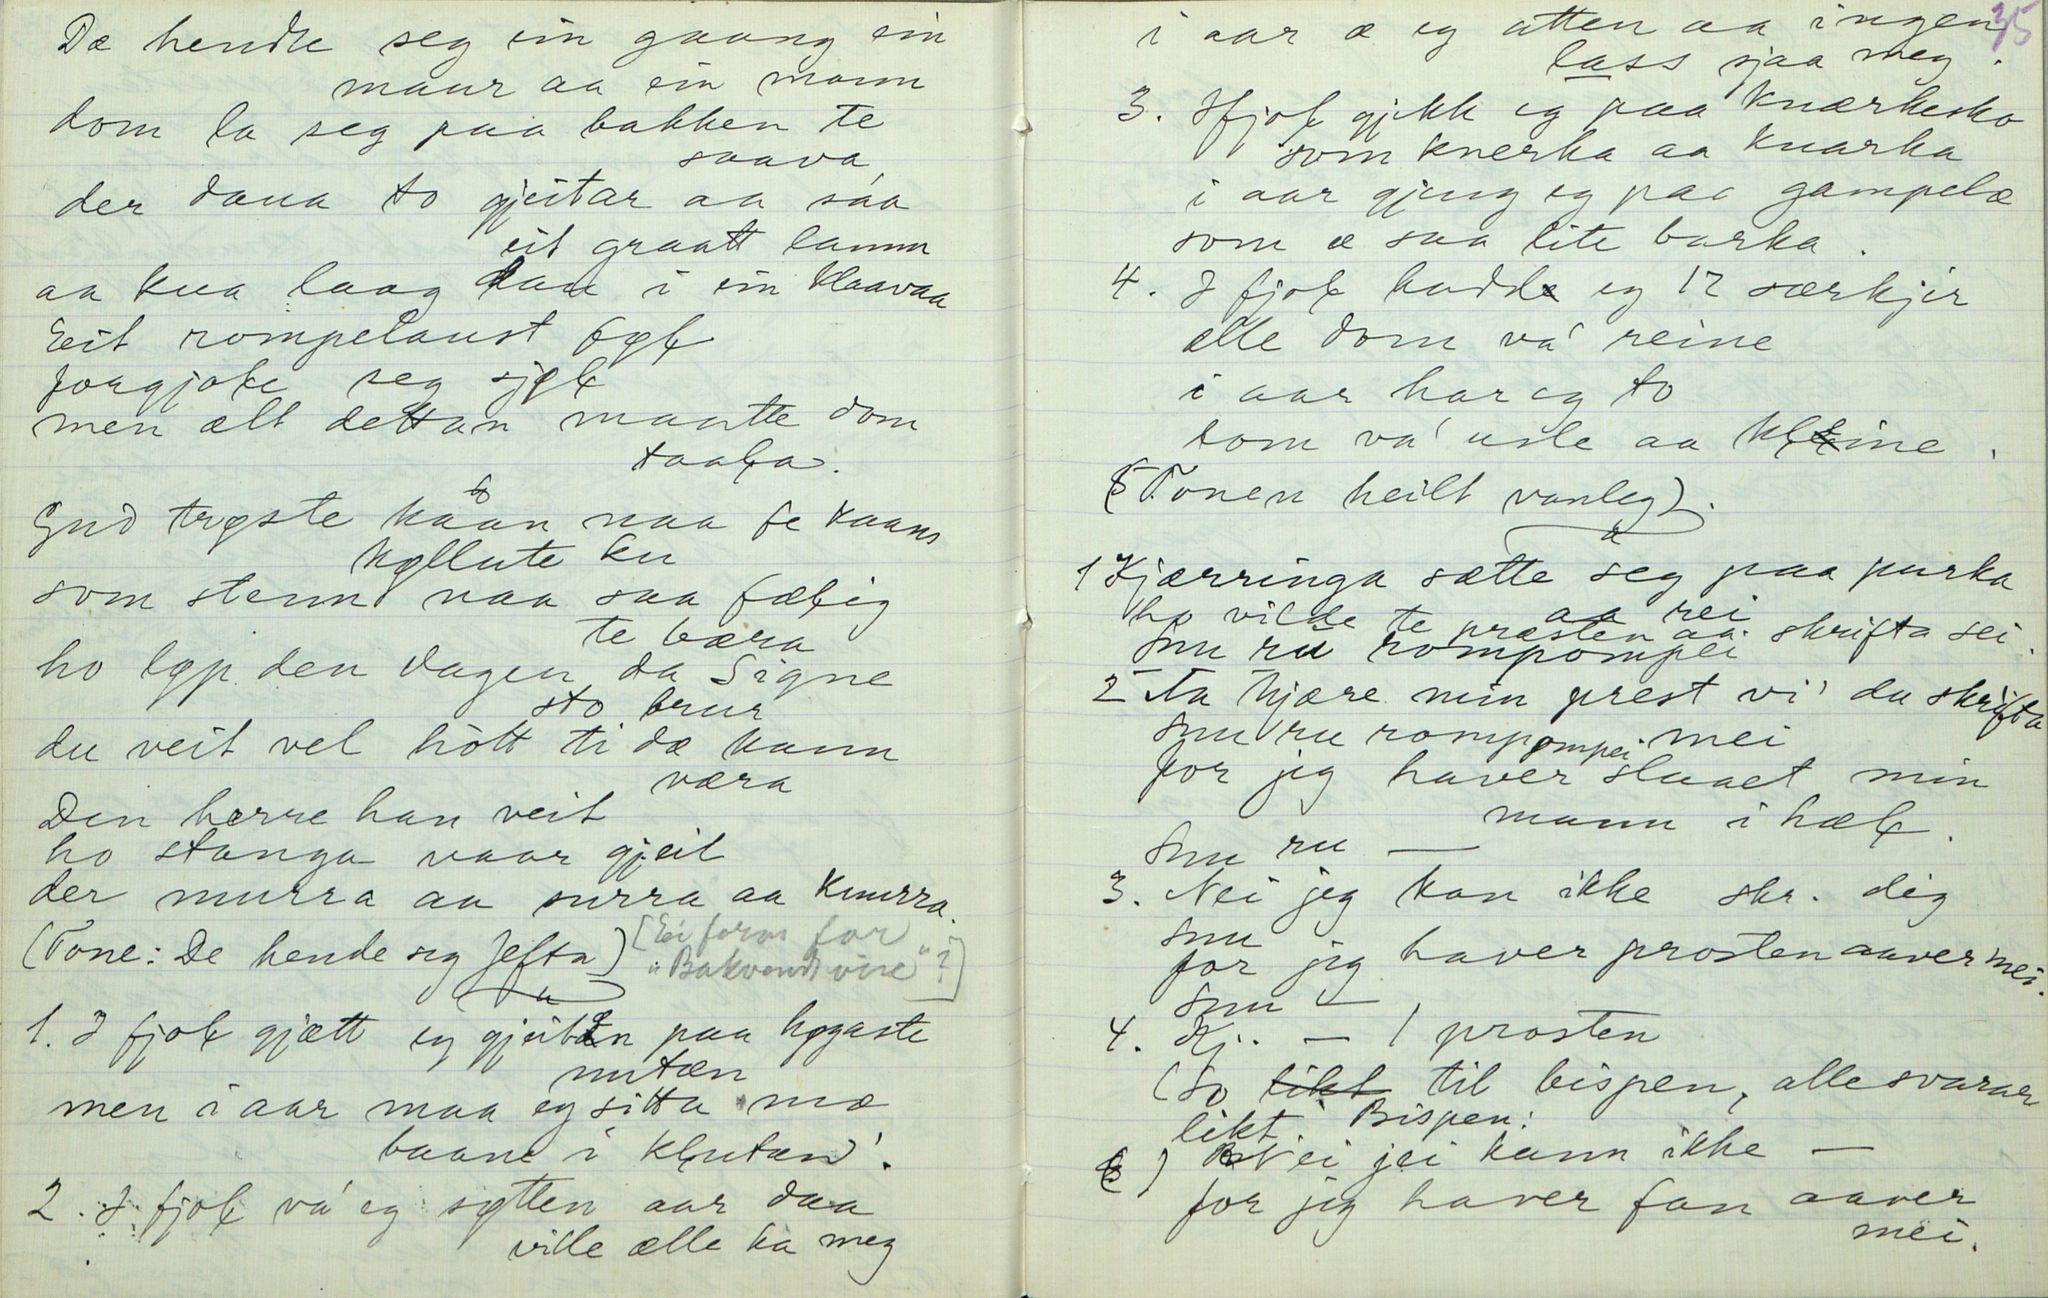 Dæ hendte seg ein gaang ein
maur aa ein mann
dom la seg paa bakken te
saava
der daua to gjeitar aa såa
eit graatt lamm
aa kua laag dau i ein klaavaa
Eit rompelaust øgł
forgjole seg sjøł
men alt dettan maatte dom
taała.
Gud trøste kåån naa fe kaans
køllute ku
som stenn naa saa fæłig
te bæra
ho løp den dagen da Signe
sto brur
du veit vel hott ti dæ kann
væra
Den herre han veit
ho stanga vaar gjeit
der murra aa surra aa knurra.
(Tone: De hende seg Jefta) [Ei form for
"Bakvendtvise"?]
1. I fjoł gjætt eg gjeitan paa høgaste
nutæn
men i aar maa eg sitta mæ
baane i kłutan'.
2. I fjoł va' eg søtten aar daa
ville ælle ha meg
35
i aar æ eg atten aa ingen
lass sjaa meg.
3. Ifjoł gjikk eg paa knærkesko
som knerka aa knarka
i aar gjeng eg paa gampelæ
som æ saa lite barka.
4. I fjoł hadde eg 12 særkjer
ælle dom va' reine
i aar har eg to
dom va' usle aa kłeine.
(Tonen heilt vanleg).
1 Kjærringa sætte seg paa purka
aa rei
ho vilde te præsten aa skrifta sei.
Snu ru rompompei
2 Aa kjære min prest vi' du skrifta
mei
snu ru rompompei
for jeg haver slaaet min
mann i hæł.
Snu ru —
3. Nei jeg kan ikke skr. dig
snu
for jeg haver prosten aaver mei.
Snu —
4. Kj. — / prosten
(So likt til bispen, alle svarar
likt. Bispen:
) Nei jei kann ikke —
for jeg haver fan aaver
mei.